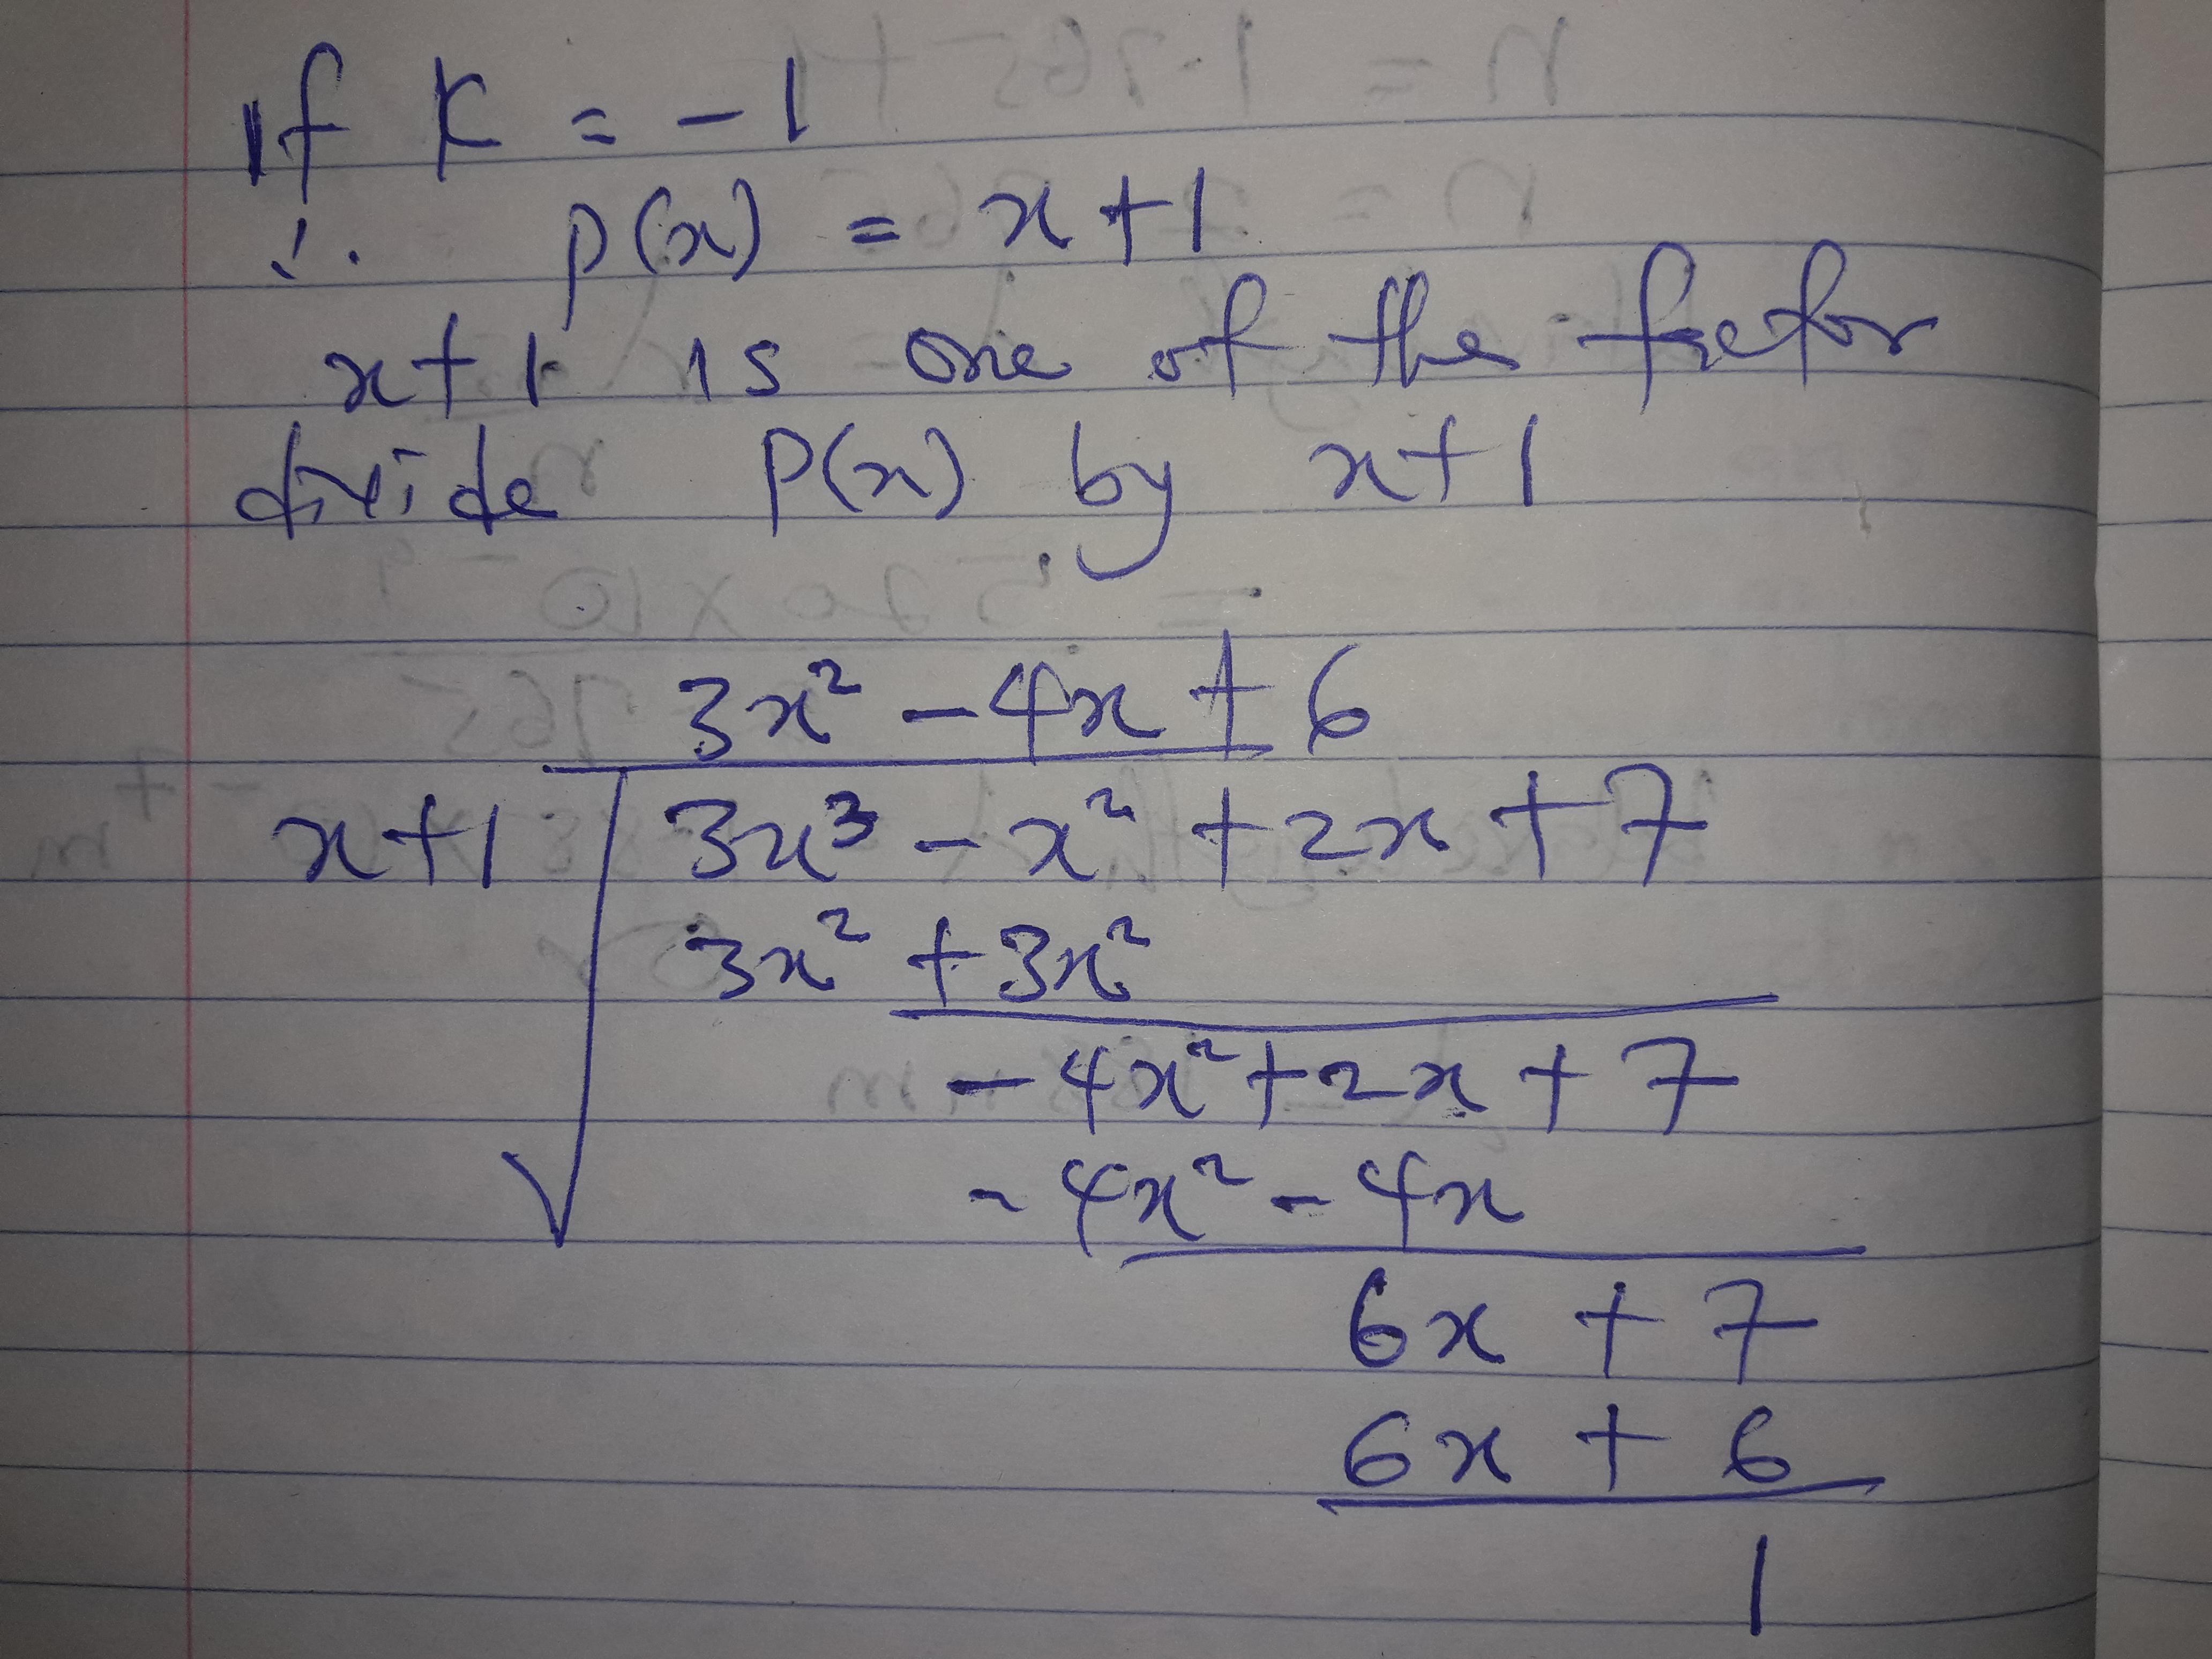 If K = -1
∴ p(x) = x+1
x+1 is one of the factor
divide P(x) by x+1
3x² - 4x + 6
x+1 √ 3x³ - x² + 2x + 7
3x² + 3x²
- 4x² + 2x + 7
- 4x² - 4x
6x + 7
6x + 6
1